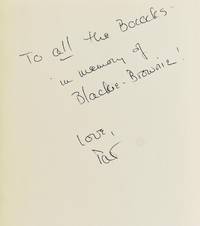 To all the Bocock's -
in memory of
Blackie-Brownie!
Love,
Pat